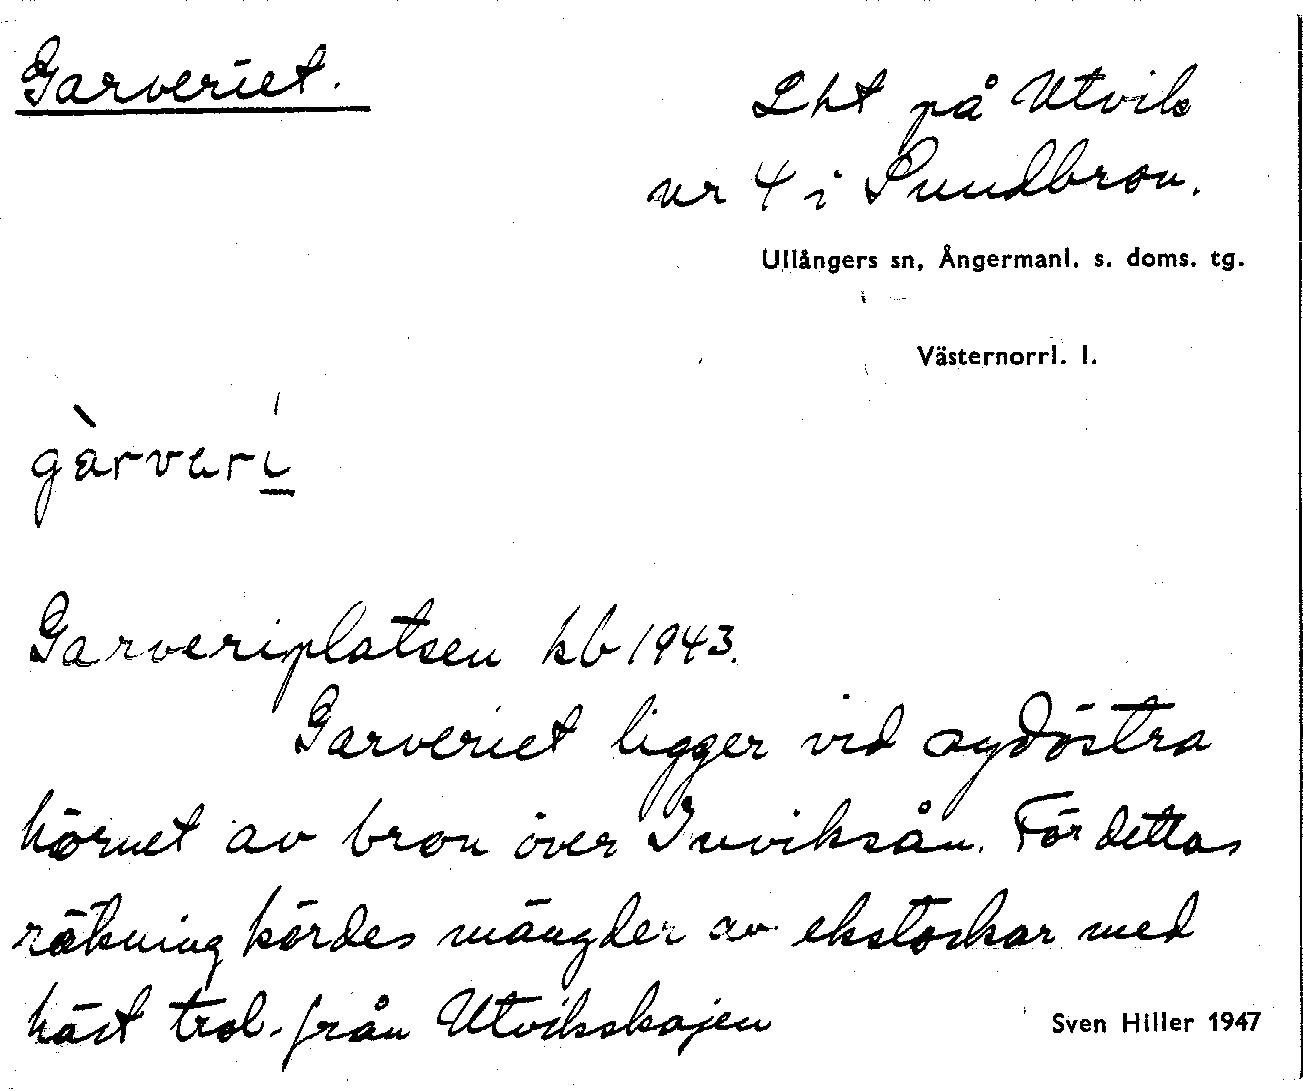 Garveriet.
Lht på Utvik
nr 4 i Sundbron.
Ullångers sn, Ångermanl. s. doms. tg.
Västernorrl. l.
gàrverí̲
Garveriplatsen kb 1943.
Garveriet ligger vid sydöstra
hörnet av bron över Inviksån. För dettas
räkning kördes mängder av ekstockar med
häst trol. från Utvikskajen
Sven Hiller 1947